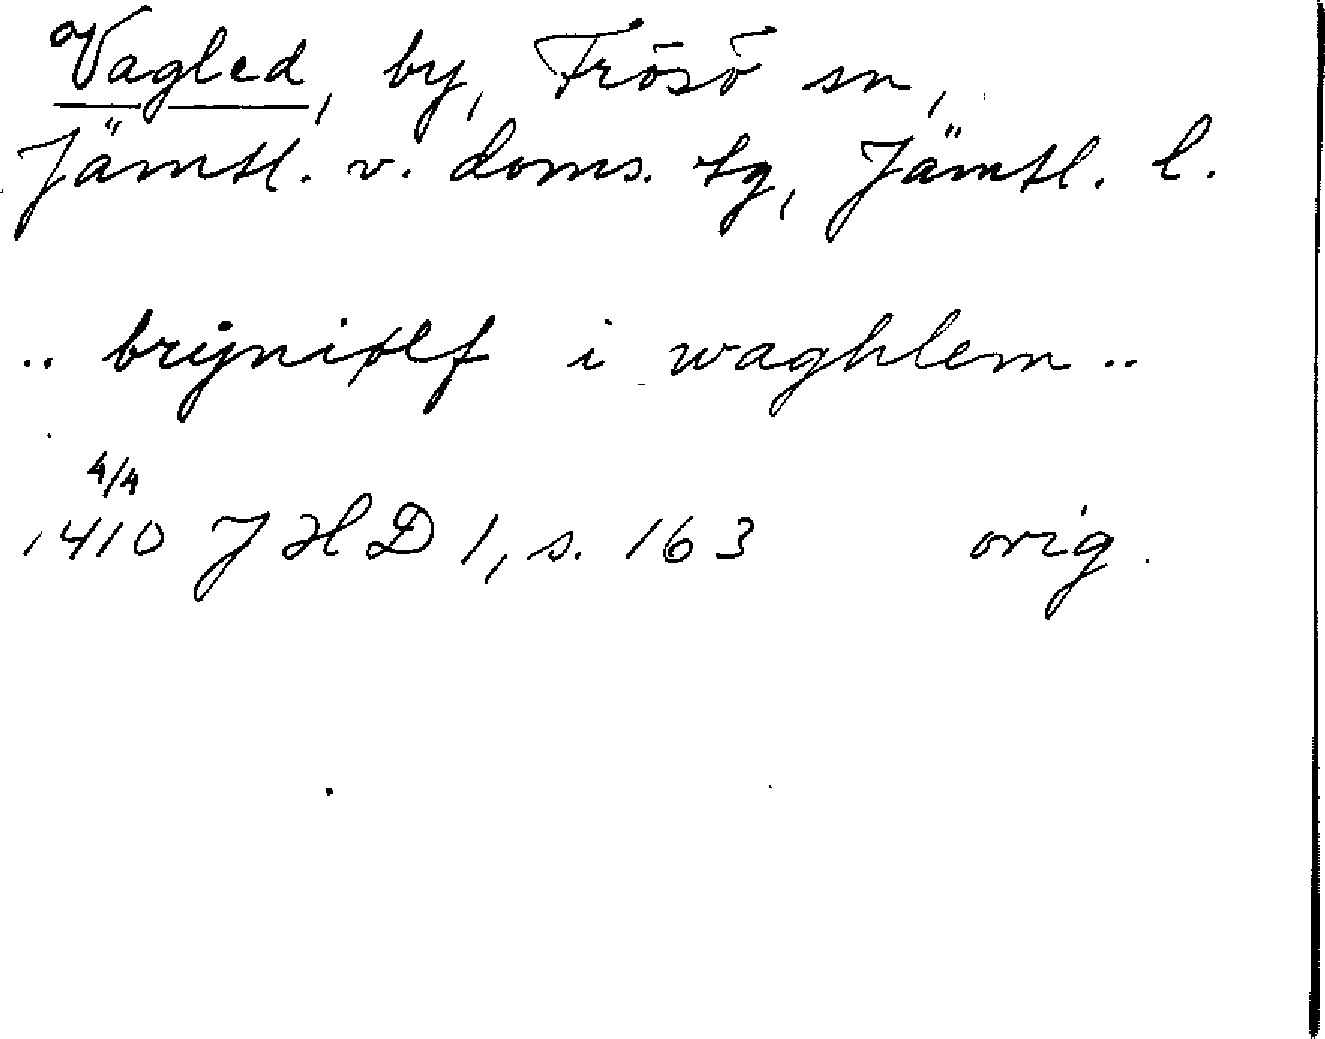 Vagled, by, Frösö sn,
Jämtl. v. doms. tg, Jämtl. l.
.. i waghlem ..
4/4
1410 JHD 1, s. 163 orig.